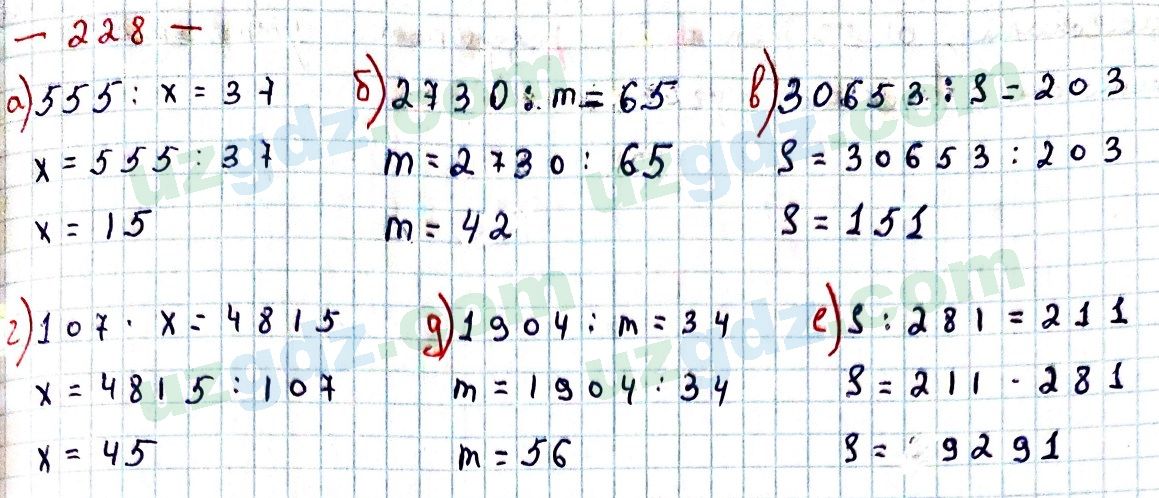 — 228 —
а) 555 : x = 37
x = 555 : 37
x = 15
б) 2730 : m = 65
m = 2730 : 65
m = 42
в) 30653 : S = 203
S = 30653 : 203
S = 151
г) 107 · x = 4815
x = 4815 : 107
x = 45
д) 1904 : m = 34
m = 1904 : 34
m = 56
е) S : 281 = 211
S = 211 · 281
S = 9291
uzgdz.com
uzgdz.com
uzgdz.com
uzgdz.com